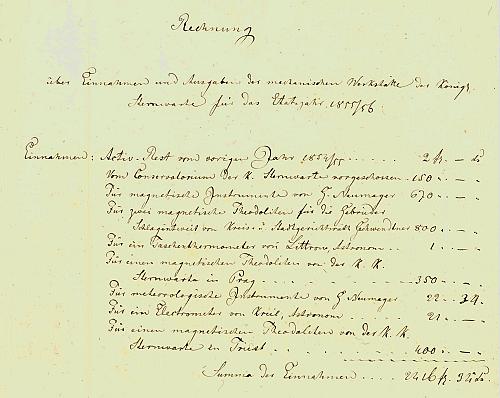 Rechnung
über Einnahmen und Ausgaben der mechanischen Werkstätte der Königl.
Sternwarte für das Etatsjahr 1855/56.
Einnahmen: Activ-Rest vom vorigen Jahr 1854/55 . . . . . . 2 fl. — x
Vom Conservatorium der K. Sternwarte vorgeschossen 150 . — .
Für magnetische Instrumente von H. Neumayer 670 . — .
Für zwei magnetische Theodoliten für die Gebrüder
Schlagintweit von Kreis- u. Stadtgerichtsrath Gschwendtner 800 . — .
Für ein Taschenthermometer von Littrow, Astronom . . . 1 . . — .
Für einen magnetischen Theodoliten von der K. K.
Sternwarte in Prag . . . . 350 . — .
Für meteorologische Instrumente von H. Neumayer 22 . . 34 .
Für ein Electrometer von Kreil, Astronom . . 21 . — .
Für einen magnetischen Theodoliten von der K. K.
Sternwarte in Triest . . . . 400 . . — .
Summa der Einnahmen . . . . 2416 fl. 32 x.